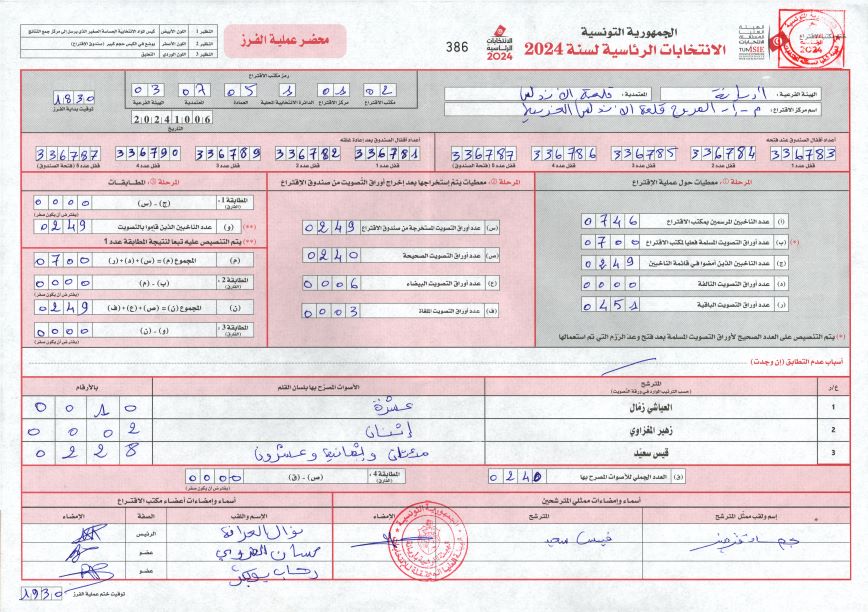 الجمهورية التونسية
الانتخابات الرئاسية لسنة 2024
الهيئة العليا المستقلة للانتخابات
TUNISIE
386
الانتخابات الرئاسية 2024
محضر عملية الفرز
النظير 1 اللون الأبيض
النظير 2 اللون الأصفر
النظير 3 اللون الوردي التعليق
الهيئة الفرعية : أريانة
المعتمدية : قلعة الأندلس
اسم مركز الإقتراع
رمز مكتب الإقتراع
02 01 1 05 07 03
مكتب الإقتراع مركز الإقتراع الدائرة الانتخابية المحلية العمادة المعتمدية الهيئة الفرعية
20241006
التاريخ
1830
توقيت بداية الفرز
أعداد أقفال الصندوق عند فتحه
336783 336784 336785 336786 336787
قفل عدد 1 قفل عدد 2 قفل عدد 3 قفل عدد 4 قفل عدد 5 (فتحة الصندوق)
أعداد أقفال الصندوق بعد إعادة غلقه
336781 336782 336789 336790 336787
قفل عدد 1 قفل عدد 2 قفل عدد 3 قفل عدد 4 قفل عدد 5 (فتحة الصندوق)
المرحلة ①: معطيات حول عملية الإقتراع
(أ) عدد الناخبين المرسمين بمكتب الاقتراع 0746
(*) (ب) عدد أوراق التصويت المسلمة فعليا لمكتب الاقتراع 0700
(ج) عدد الناخبين الذين أمضوا في قائمة الناخبين 0249
(د) عدد أوراق التصويت التالفة 0000
(ر) عدد أوراق التصويت الباقية 0451
(*) يتم التنصيص على العدد الصحيح لأوراق التصويت المسلمة بعد فتح وعد الرزم التي تم استعمالها
المرحلة ②: معطيات يتم إستخراجها بعد إخراج أوراق التصويت من صندوق الاقتراع
(س) عدد أوراق التصويت المستخرجة من صندوق الاقتراع 0249
(ص) عدد أوراق التصويت الصحيحة 0240
(ع) عدد أوراق التصويت البيضاء 0006
(ف) عدد أوراق التصويت الملغاة 0003
المرحلة ③: المطابقات
المطابقة 1: (الفارق) (ج) - (س) 0000
(يفترض أن يكون صفر)
(**) (و) عدد الناخبين الذين قاموا بالتصويت 0249
(**) يتم التنصيص عليه تبعا لنتيجة المطابقة عدد 1
(م) المجموع (م) = (س) + (د) + (ر) 0700
المطابقة 2: (الفارق) (ب) - (م) 0000
(يفترض أن يكون صفر)
(ن) المجموع (ن) = (ص) + (ع) + (ف) 0249
المطابقة 3: (الفارق) (و) - (ن) 0000
(يفترض أن يكون صفر)
أسباب عدم التطابق (إن وجدت)
ع/د المترشح الأصوات المصرّح بها بلسان القلم بالأرقام
(حسب الترتيب الوارد في ورقة التصويت)
1 العياشي زمّال عشرة 0010
2 زهير المغزاوي إثنان 0002
3 قيس سعيّد مئتان وثمانية وعشرون 0228
(ق) العدد الجملي للأصوات المصرح بها 0240
المطابقة 4: (الفارق) (ص) - (ق) 0000
(يفترض أن يكون صفر)
أسماء وإمضاءات ممثلي المترشحين
إسم ولقب ممثل المترشح المترشح الإمضاء
قيس سعيد
أسماء وإمضاءات أعضاء مكتب الاقتراع
الإسم واللقب الصفة الإمضاء
الرئيس
عضو
عضو
توقيت ختم عملية الفرز 1930